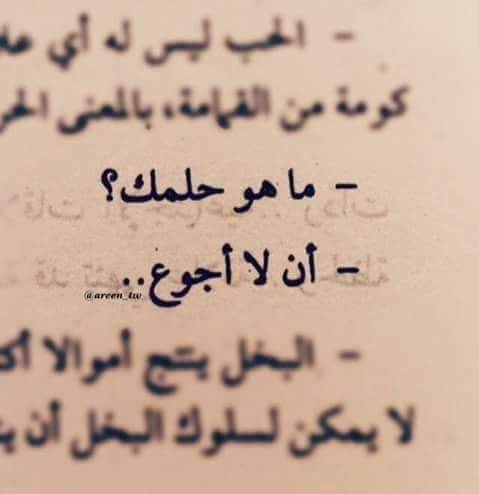 - الحب ليس له أي
كومة من القمامة، بالمعنى
- ما هو حلمك؟
- أن لا أجوع..
@areen_tw
- البخل ينتج أموالا
لا يمكن لسلوك البخل أن